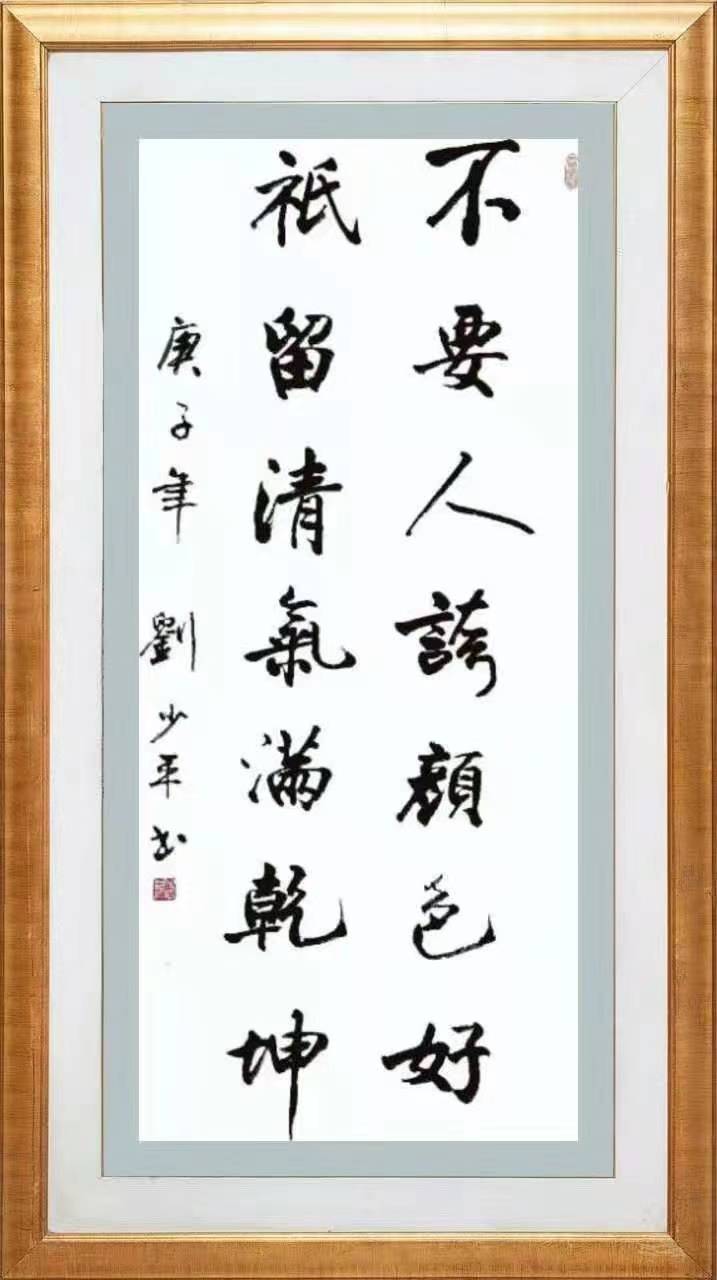 不要人誇顏色好
祇留清氣滿乾坤
庚子年 劉少平书